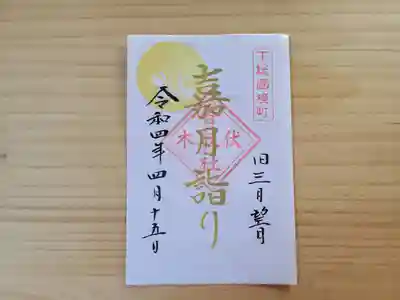 下総國境町
旧三月望月
嘉月詣り
伏木
社
令和四年四月十五日